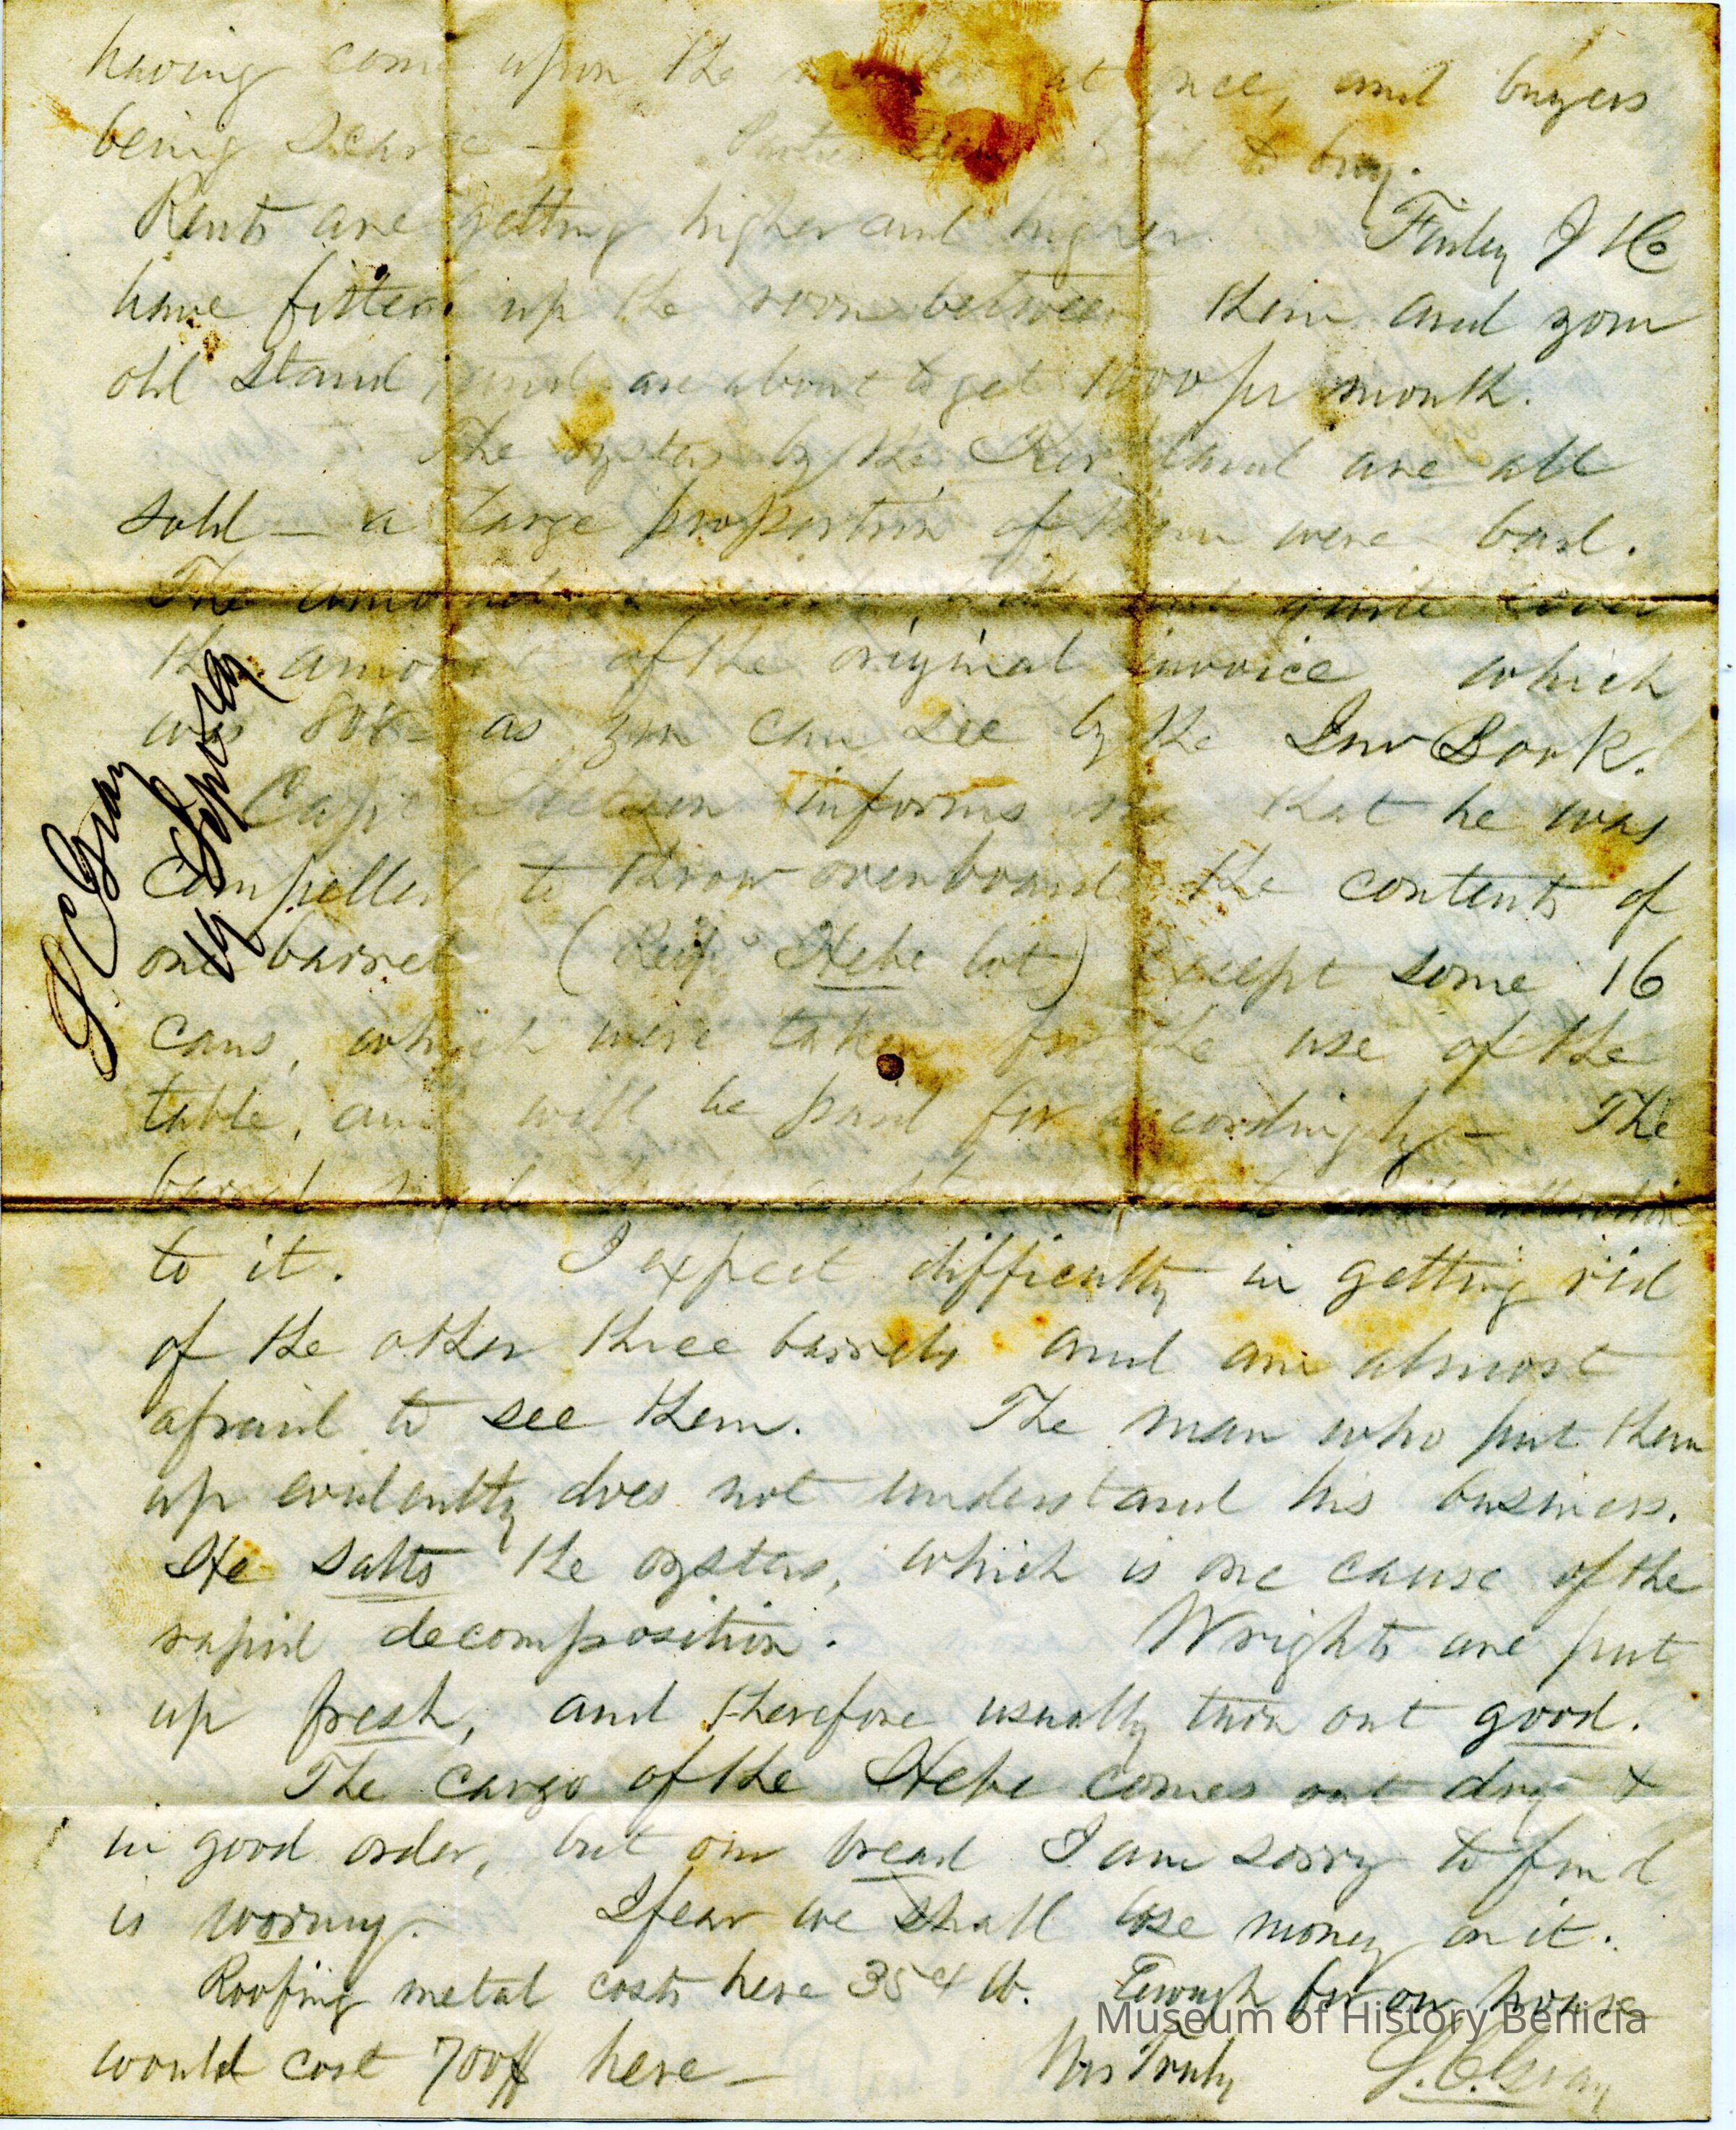 having come upon the market at once, and buyers
being scarce — Parties are afraid to buy.
Rents are getting higher and higher. Finley J & Co
have fitted up the room between them and your
old stand, and are about to get 1000 pr month.
The oysters by the are all
sold — a large proportion of them were bad.
The amount quite cover
the amount of the original invoice which
was as you can see by the Inv Book.
Capt informs me that he was
compelled to throw overboard the contents of
one barrel (Hebe lot) except some 16
cans, which were taken for the use of the
table, and will be paid for accordingly — The
barrel attention
to it. I expect difficulty in getting rid
of the other three barrels and am almost
afraid to see them. The man who put them
up evidently does not understand his business.
He salts the oysters, which is one cause of the
rapid decomposition. Wrights are put
up fresh, and therefore usually turn out good.
The cargo of the Hebe comes out dry &
in good order, but our bread I am sorry to find
is wormy. I fear we shall lose money on it.
Roofing metal costs here 35 ¢ lb. Enough for our house
would cost 700$ here — Yrs Truly S. C. Gray
S C Gray
14
Museum of History Benicia